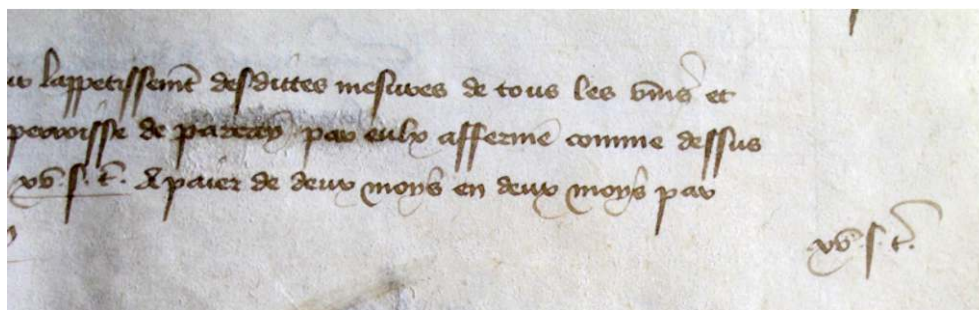 lappetissemt desdittes mesures de tous les vins et
parroisse de parcay par eulx afferme comme dessus
xv. s. t. A paier de deux moys en deux moys par
xv. s. t.